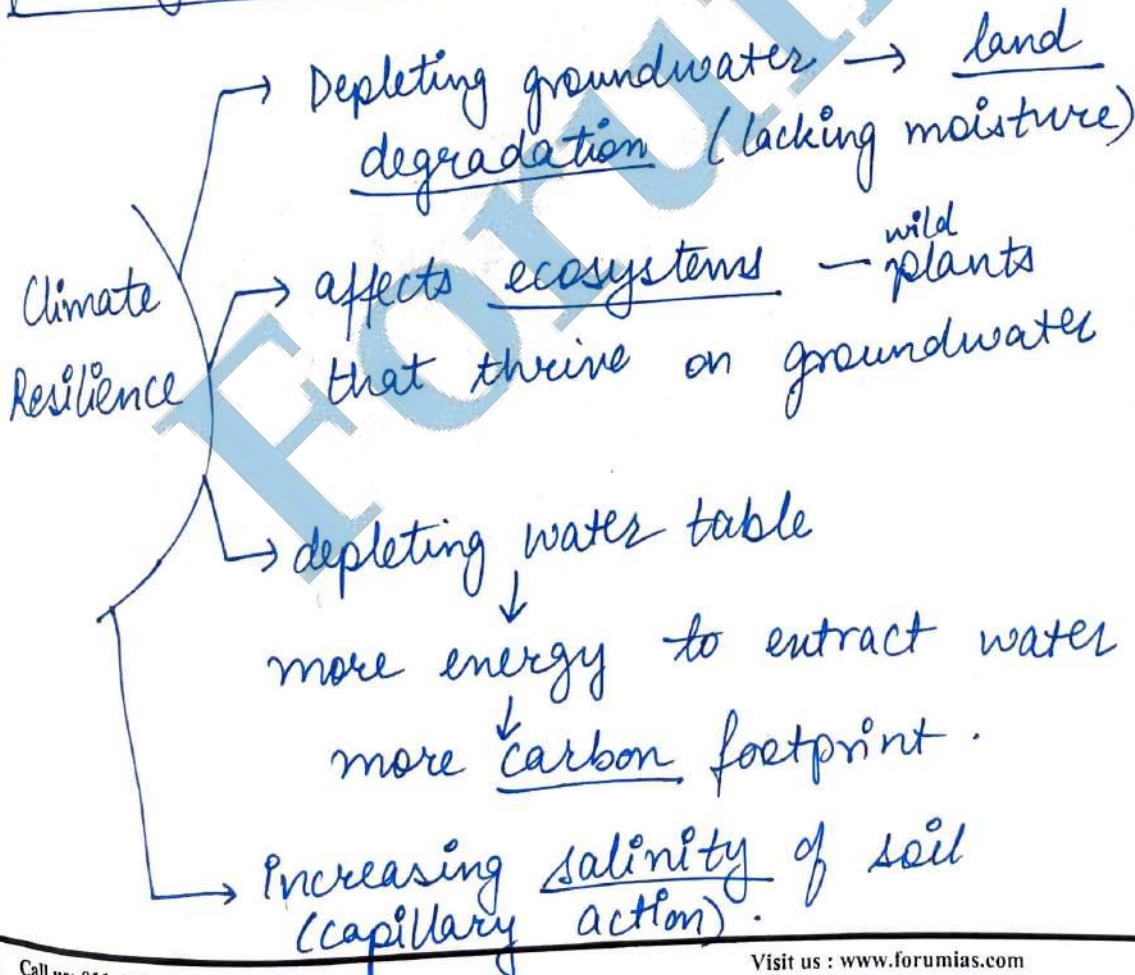 Depleting groundwater → land
degradation (lacking moisture)
Climate
Resilience
→ affects ecosystems – wild plants
that thrive on groundwater
→ depleting water table
↓
more energy to extract water
↓
more carbon footprint.
→ increasing salinity of soil
(capillary action).
Call us:
Visit us : www.forumias.com
Forum